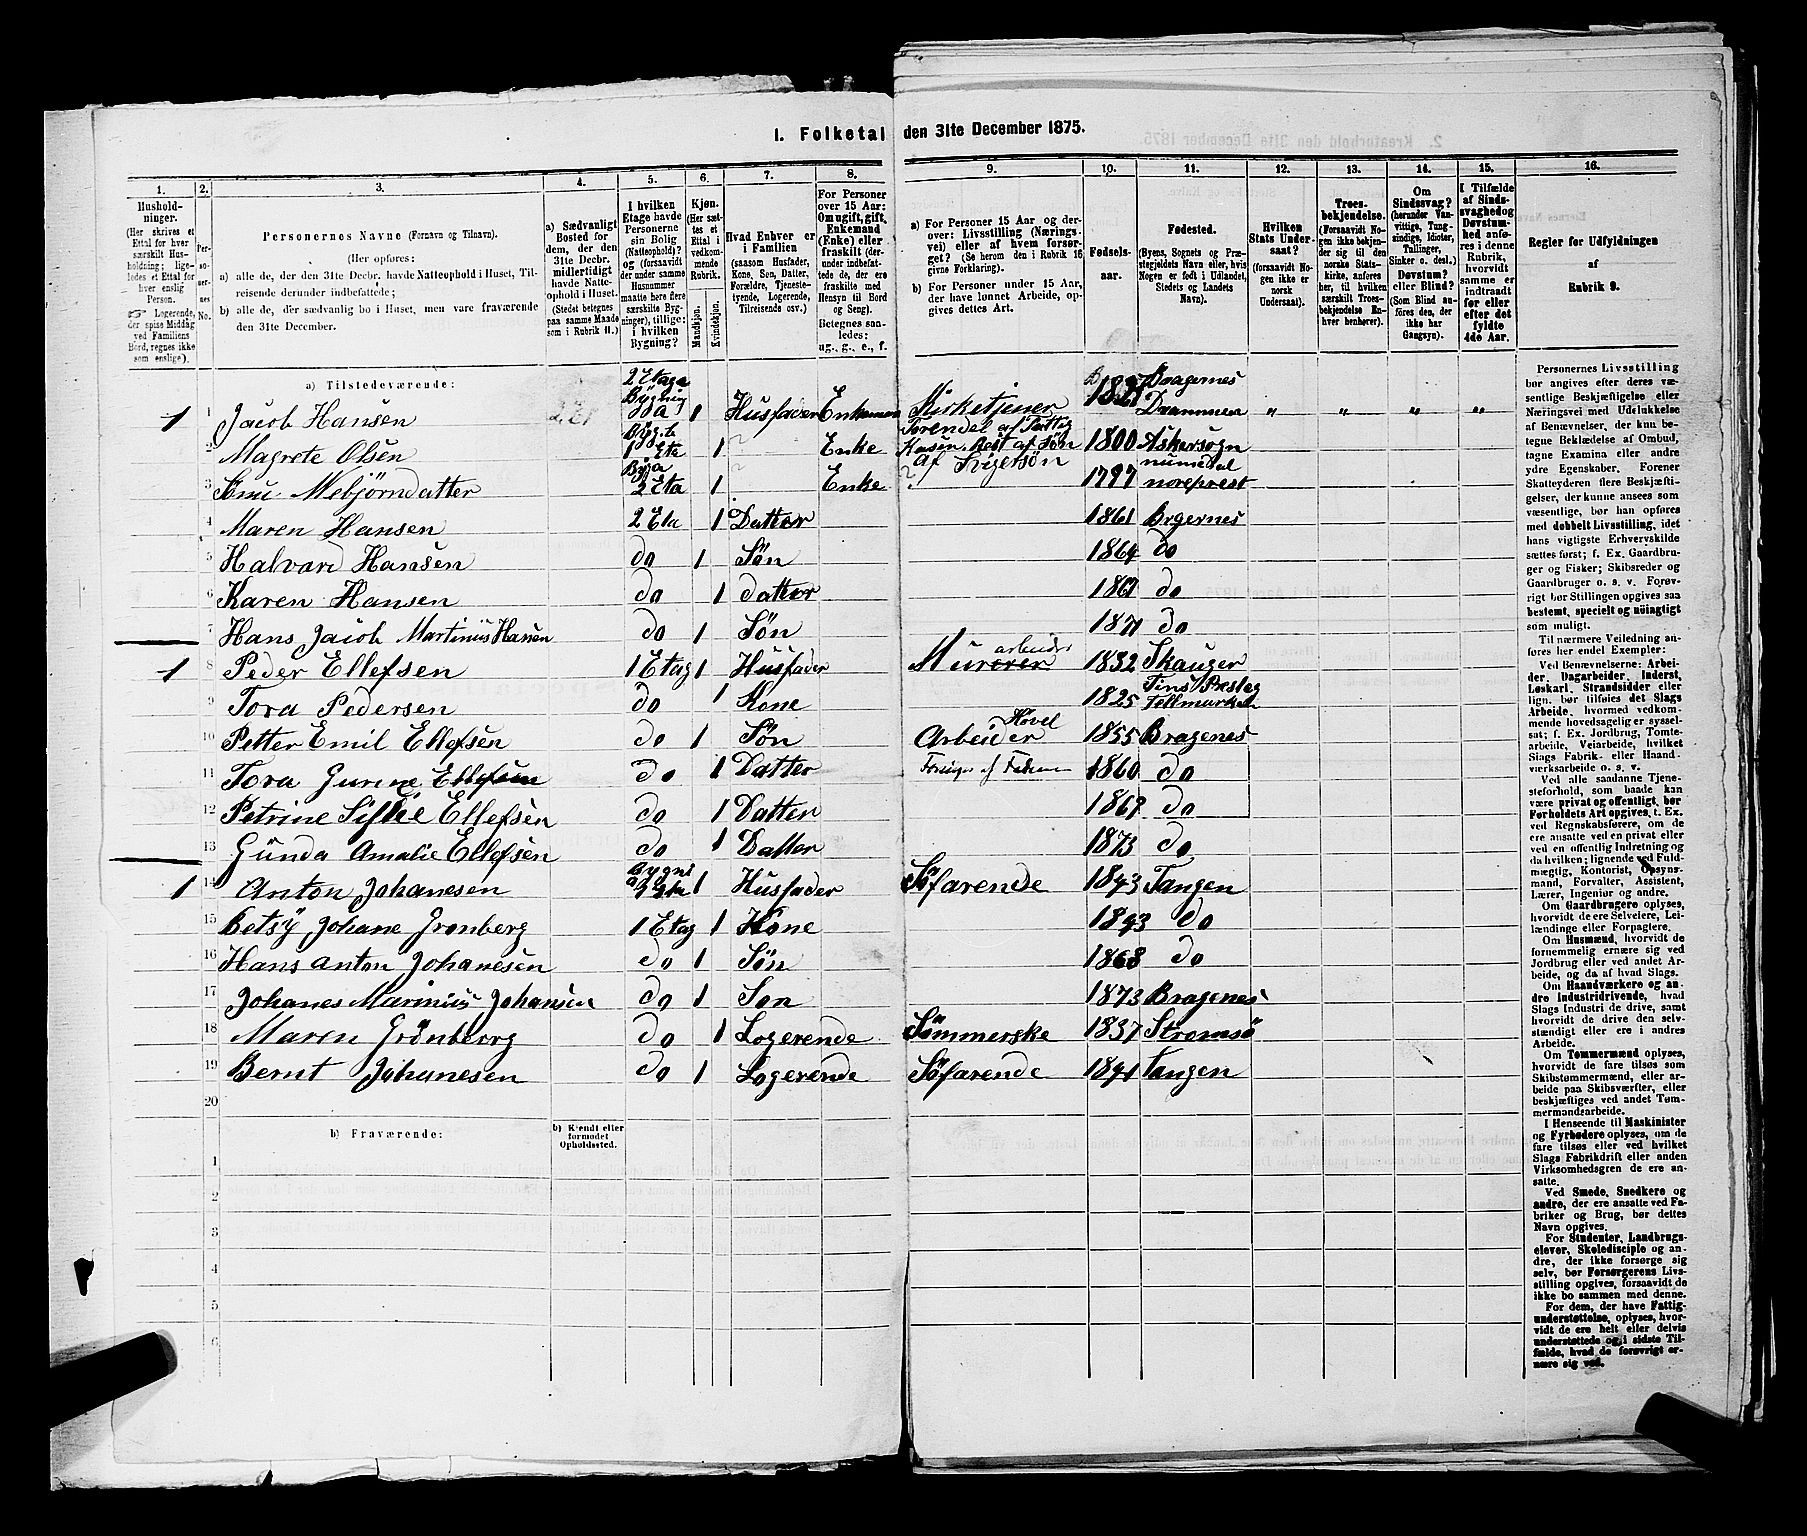 1. Folketal den 31te December 1875.
1. 2. 3. 4. 5. 6. 7. 8. 9. 10. 11. 12. 13. 14. 15. 16.
Husholdninger.
(Her skrives et
Ettal for hver
særskilt Husholdning;
ligeledes et Ettal for
hver enslig
Person.
☞ Logerende,
der spise Middag
ved Familiens
Bord, regnes ikke
som enslige).
Personernes No.
Personernes Navne (Fornavn og Tilnavn).
(Her opføres:
a) alle de, der den 31te Decbr. havde Natteophold i Huset, Tilreisende derunder indbefattede;
b) alle de, der sædvanlig bo i Huset, men vare fraværende
den 31te December.
a) Sædvanligt
Bosted for
dem, der den
31te Decbr.
midlertidigt
havde Natteophold i Huset.
(Stedet betegnes
paa samme Maade
som i Rubrik 11.)
I hvilken
Etage havde
Personerne
sin Bolig
(Natteophold)?
og (forsaavidt
der under samme
Husnummer
maatte høre flere
særskilte Bygninger), tillige:
i hvilken
Bygning?
Kjøn.
(Her sættes et
Ettal i
vedkommende
Rubrik.
Mandkjøn.
Kvindekjøn.
Hvad Enhver er
i Familien
(saasom Husfader,
Kone, Søn, Datter,
Forældre, Tjenestetyende, Logerende,
Tilreisende osv.)
For Personer
over 15 Aar:
Om ugift, gift,
Enkemand
(Enke) eller
fraskilt
Betegnes saaledes:
ug., g., e., f.
a) For Personer 15 Aar og derover: Livsstilling (Næringsvei) eller af hvem forsørget? (Se herom den i Rubrik 16
givne Forklaring).
b) For Personer under 15 Aar,
der have lønnet Arbeide, opgives dettes Art.
Fødselsaar.
Fødested.
(Byens, Sognets og Præstegjeldets Navn eller, hvis
Nogen er født i Udlandet,
Stedets og Landets
Navn).
Hvilken
Stats Undersaat?
(forsaavidt Nogen ikke er
norsk
Undersaat).
Troesbekjendelse.
(Forsaavidt Nogen ikke bekjender sig til
den norske Statskirke, anføres
her, til hvilken
særskilt Troesbekjendelse Enhver henhører).
Om
Sindssvag?
(herunder Vanvittige, Tungsindige, Idioter,
Tullinger,
Sinker o. desl.)
Døvstum?
eller Blind?
(Som Blind anføres den, der
ikke har
Gangsyn).
I Tilfælde
af Sindssvaghed og
Døvstumhed anføres i denne
Rubrik,
hvorvidt
samme er
indtraadt
før eller
efter det
fyldte
4de Aar.
Regler for Udfyldningen
af
Rubrik 9.
a) Tilstedeværende:
1 1 Jacob Hansen 2 Etage Bygning a 1 Husfader Enkeman Kirketjener 18 Bragernes Drammen „ „ „ „
2 Magrete Olsen 1 Eta 1 „ Enke 1800 Askersogn
3 Mebjörndatter 2 Eta 1 Enke af Svigersön 1797 numedal noreprest
4 Maren Hansen 2 Eta 1 Datter 1861 Brgernes
5 Halvard Hansen do 1 Sön 1864 do
6 Karen Hansen do 1 datter 186 do
7 Hans Jacob Martinus Hansen do 1 Sön 1871 do
1 8 Peder Ellefsen 1 Etag 1 Husfader Murer arbeider 1832 Skauger
9 Tora Pedersen do 1 Kone 1825 Tins/Presteg Tellmarken
10 Petter Emil Ellefsen do 1 Sön Hövel Arbeider 1855 Bragenes
11 Tora Gurine Ellefsen do 1 Datter 1860 do
12 Petrine Ellefsen do 1 Datter 1867 do
13 Gunda Amalie Ellefsen do 1 Datter 1873 do
1 14 Anton Johanesen Bygni 1 Husfader Söfarende 1843 Tangen
15 Betsÿ Johane Gronberg 1 Etag 1 Kone 1843 do
16 Hans anton Johanesen do 1 Sön 1868 do
17 Johanes Marinius Johansen do 1 Son 1873 Bragenes
18 Maren Grönberg do 1 Logerende Sömmerske 1837 Stromsö
19 Bernt Johanesen do 1 Logerende Söfarende 1841 Tangen
20
b) Fraværende:
b) Kjendt eller
formodet
Opholdssted.
1
2
3
4
5
6
Personernes Livsstilling
bør angives efter deres væsentlige Beskjæftigelse eller
Næringsvei med Udelukkelse
af Benævnelser, der kun betegne Beklædelse af Ombud,
tagne Examina eller andre
ydre Egenskaber. Forener
Skatteyderen flere Beskjæftigelser, der kunne ansees som
væsentlige, bør han opføres
med dobbelt Livsstilling, idet
hans vigtigste Erhvervskilde
sættes først; f. Ex. Gaardbruger og Fisker; Skibsreder og
Gaardbruger o. s. v. Forøvrigt bør Stillingen opgives saa
bestemt, specielt og nöiagtigt
som muligt.
Til nærmere Veiledning anføres her endel Exempler:
Ved Benævnelserne: Arbeider, Dagarbeider, Inderst,
Løskarl, Strandsidder eller
lign. bør tilføies det Slags
Arbeide, hvormed vedkommende hovedsagelig er sysselsat; f. Ex. Jordbrug, Tomtearbeide, Veiarbeide, hvilket
Slags Fabrik- eller Haandværksarbeide o. s. v.
Ved alle saadanne Tjenesteforhold, som baade kan
være privat og offentligt, bør
Forholdets Art opgives, t. Ex.
ved Regnskabsførere, om de
ere ansatte ved en privat eller
ved en offentlig Indretning og
da hvilken; lignende ved Fuldmægtig, Kontorist, Opsynsmand, Forvalter, Assistent,
Lærer, Ingeniør og andre.
Om Gaardbrugere oplyses,
hvorvidt de ere Selveiere, Leilændinge eller Forpagtere.
Om Husmænd, hvorvidt de
fornemmelig ernære sig ved
Jordbrug eller ved andet Arbeide, og da af hvad Slags.
Om Haandværkere og andre Industridrivende, hvad
Slags Industri de drive, samt
hvorvidt de drive den selvstændigt eller ere i andres
Arbeide.
Om Tømmermænd oplyses,
hvorvidt de fare tilsøs som
Skibstømmermænd, eller arbeide paa Skibsværfter, eller
beskjæftiges ved andet Tømmermandsarbeide.
I Henseende til Maskinister
og Fyrbødere oplyses, om de
fare tilsøs eller ved hvilket
Slags Fabrikdrift eller anden
Virksomhedsgren de ere ansatte.
Ved Smede, Snedkere og
andre, der ere ansatte ved Fabriker og Brug, bør dettes
Navn opgives.
For Studenter, Landbrugselever, Skoledisciple og andre, der ikke forsørge sig
selv, bør Forsørgerens Livsstilling opgives, forsaavidt de
ikke bo sammen med denne.
For dem, der have Fattigunderstøttelse, oplyses, hvorvidt de ere helt eller delvis
understøttede og i sidste Tilfælde, hvad de forøvrigt ernære sig ved.